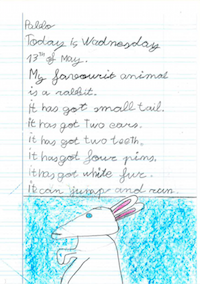 Pablo
Today is Wadnesday
13TH of May.
My favourit animal
is a rabbit.
it has got small tail.
it has got Two ears.
it has got two teeth.
it has got four pins.
it has got white fur.
it can jump and run.